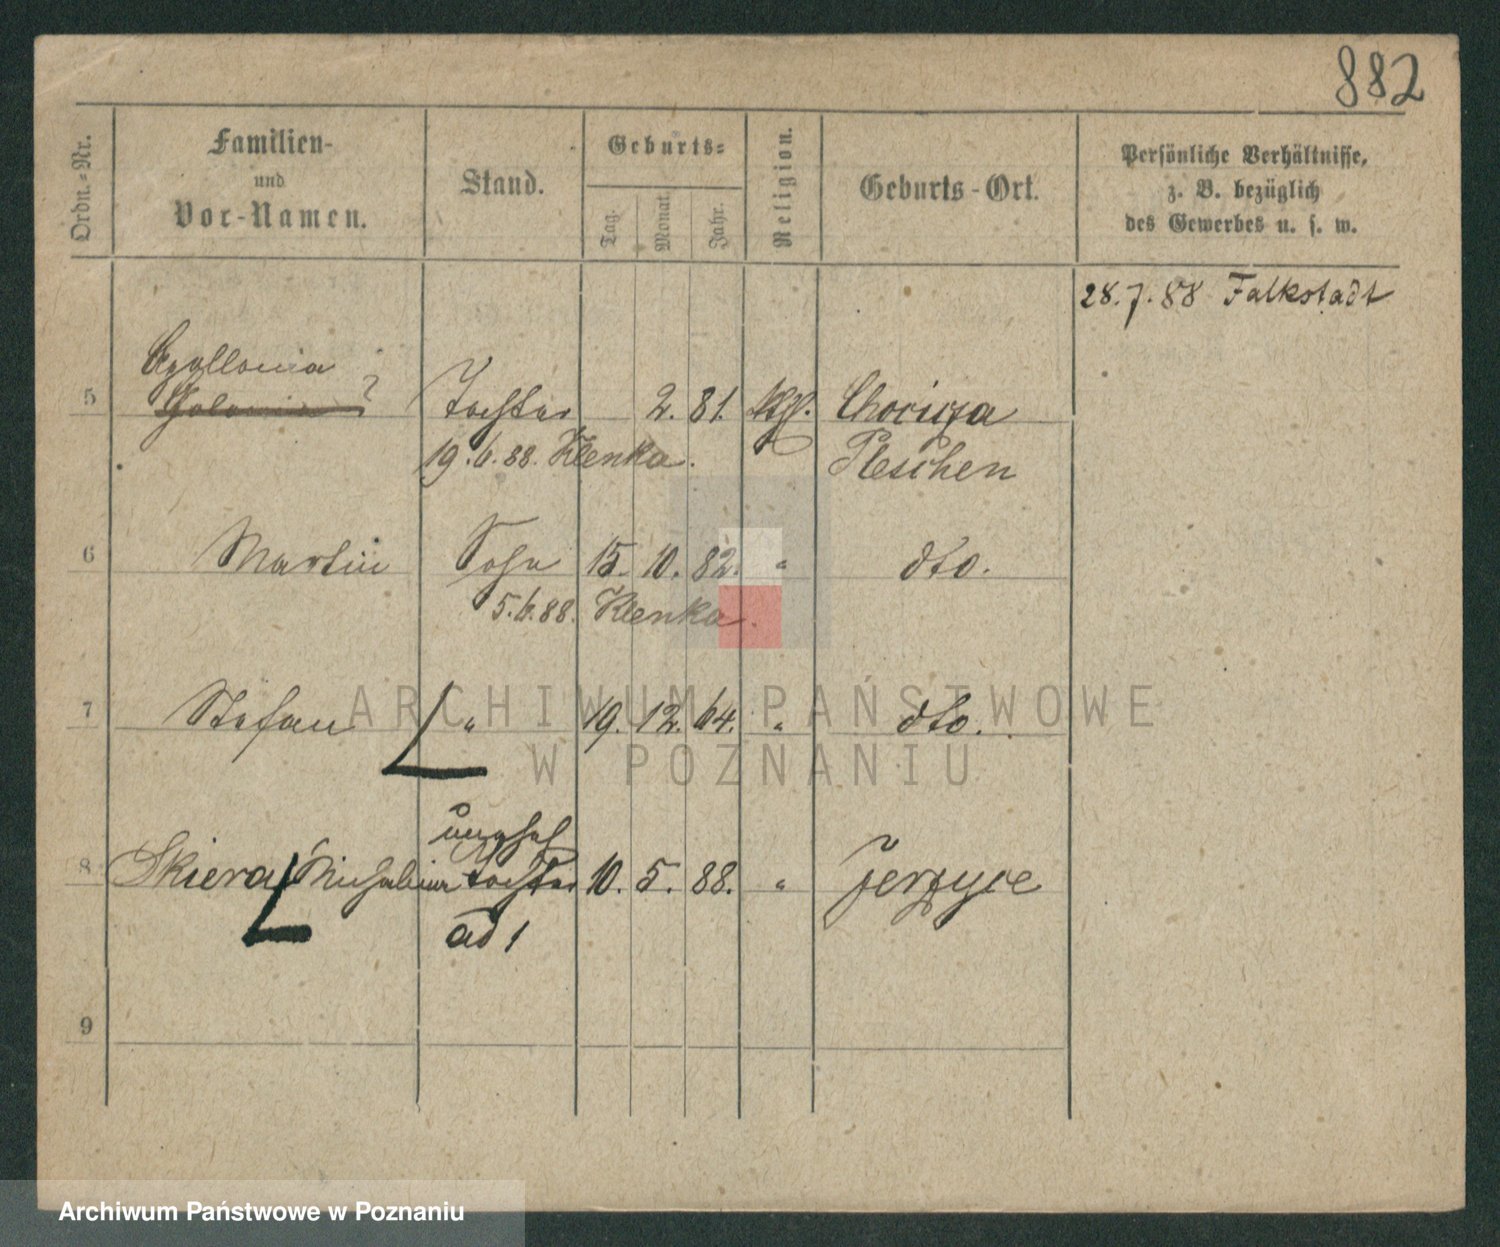 882
Ordn.-Nr.
Familien-
und
Vor-Namen.
Stand.
Geburts-
Tag.
Monat.
Jahr.
Religion.
Geburts-Ort.
Persönliche Verhältnisse,
z. B. bezüglich
des Gewerbes u. s. w.
28.7.88 Falkstadt
Apollonia ?
5 Tochter 2. 81. kth. Chocicza
19.6.88. Klenka. Pleschen
6 Martin Sohn 15. 10. 82. " dto.
5.6.88. Klenka.
7 Stefan " 19. 12. 64. " dto.
ARCHIWUM PAŃSTWOWE
W POZNANIU
unehel
8 Skiera, Michalina Tochter 10. 5. 88. " Jerzyce
ad 1
9
Archiwum Państwowe w Poznaniu